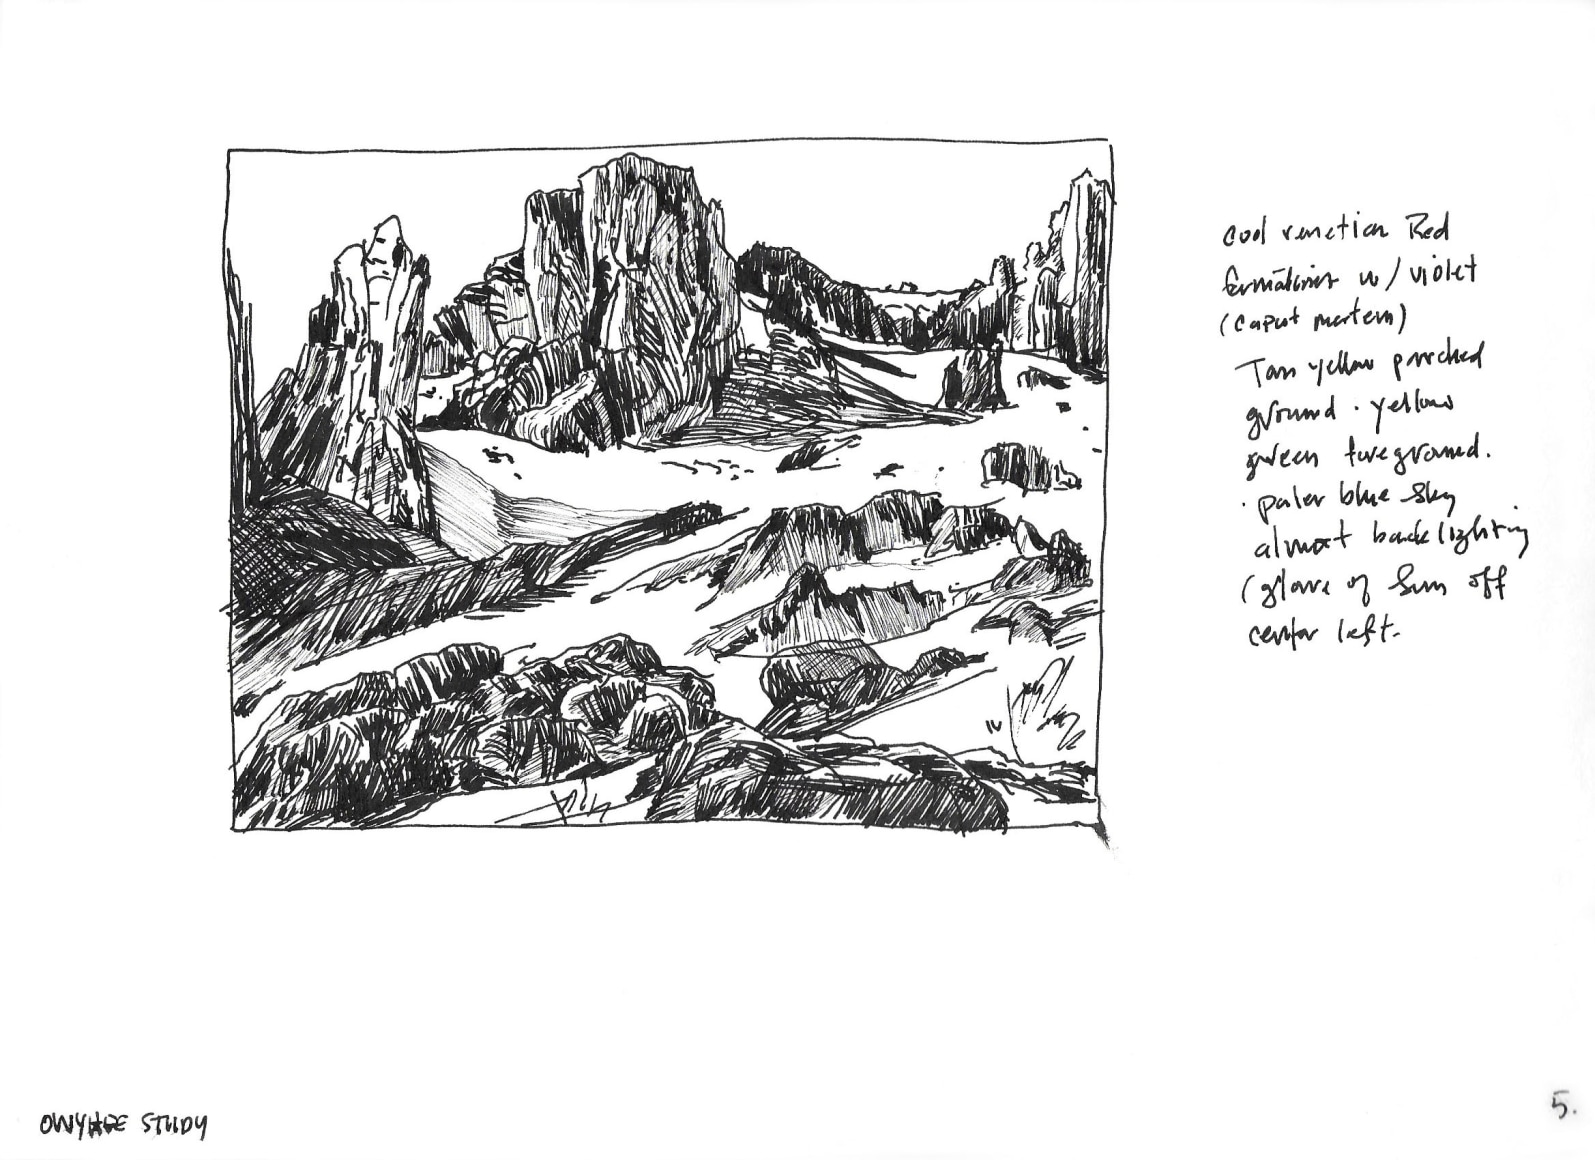 cool venetian Red
formations w/ violet
(caput mortem)
Tan yellow parched
ground · yellow
green foreground.
· paler blue sky
almost backlighting
(glare of sun off
center left.
OWYHEE STUDY
5.